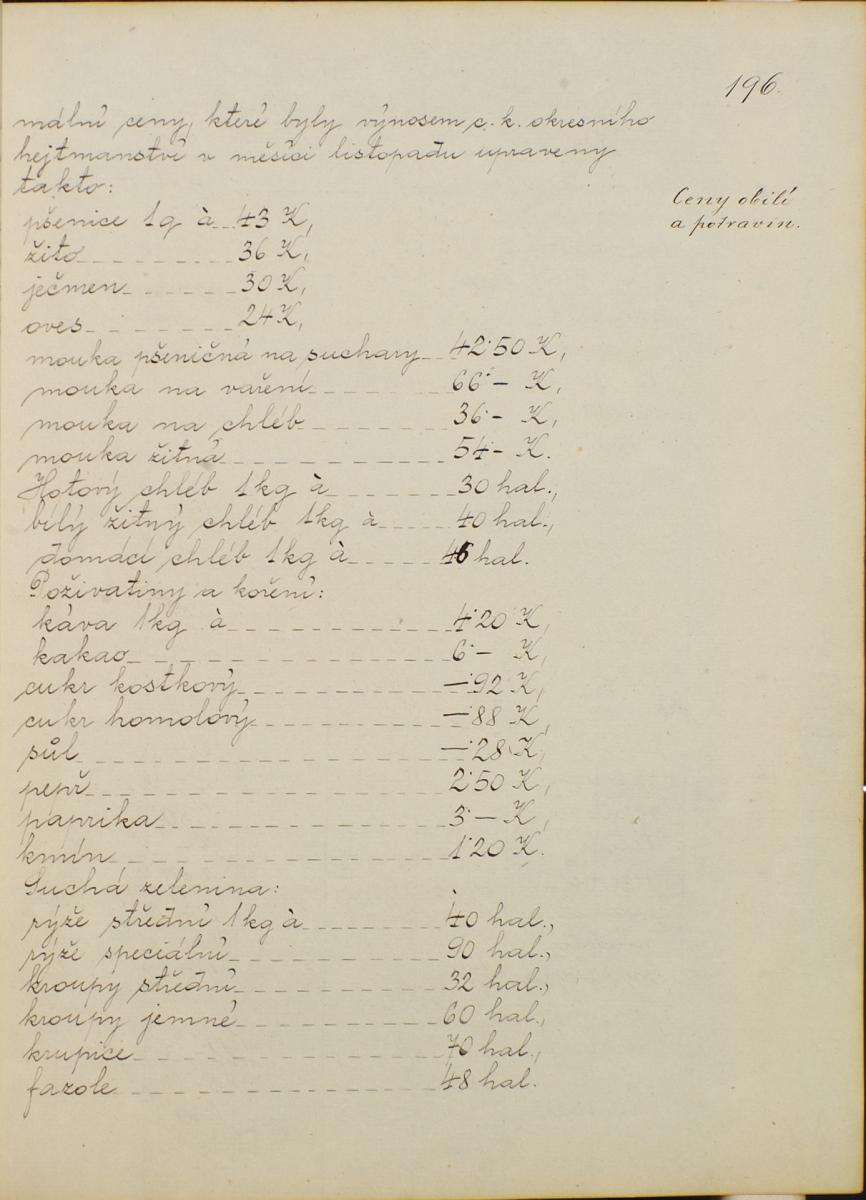 196.
mální ceny, které byly výnosem c. k. okresního
hejtmanství v měsíci listopadu upraveny
takto:
Ceny obilí
a potravin.
pšenice 1q à 43 K,
žito 36 K,
ječmen 30 K,
oves 24 K,
mouka pšeničná na suchary 42·50 K,
mouka na vaření 66·— K,
mouka na chléb 36·— K,
mouka žitná 54·— K.
Hotový chléb 1kg à 30 hal.,
bílý žitný chléb 1kg à 40 hal.,
domácí chléb 1kg à 46 hal.
Poživatiny a koření:
káva 1kg à 4·20 K,
kakao 6·— K,
cukr kostkový —·92 K,
cukr homolový —·88 K,
sůl —·28 K,
pepř 2·50 K,
paprika 3·— K,
kmín 1·20 K.
Suchá zelenina:
rýže střední 1kg à 40 hal.,
rýže speciální 90 hal.,
kroupy střední 32 hal.,
kroupy jemné 60 hal.,
krupice 70 hal.,
fazole 48 hal.